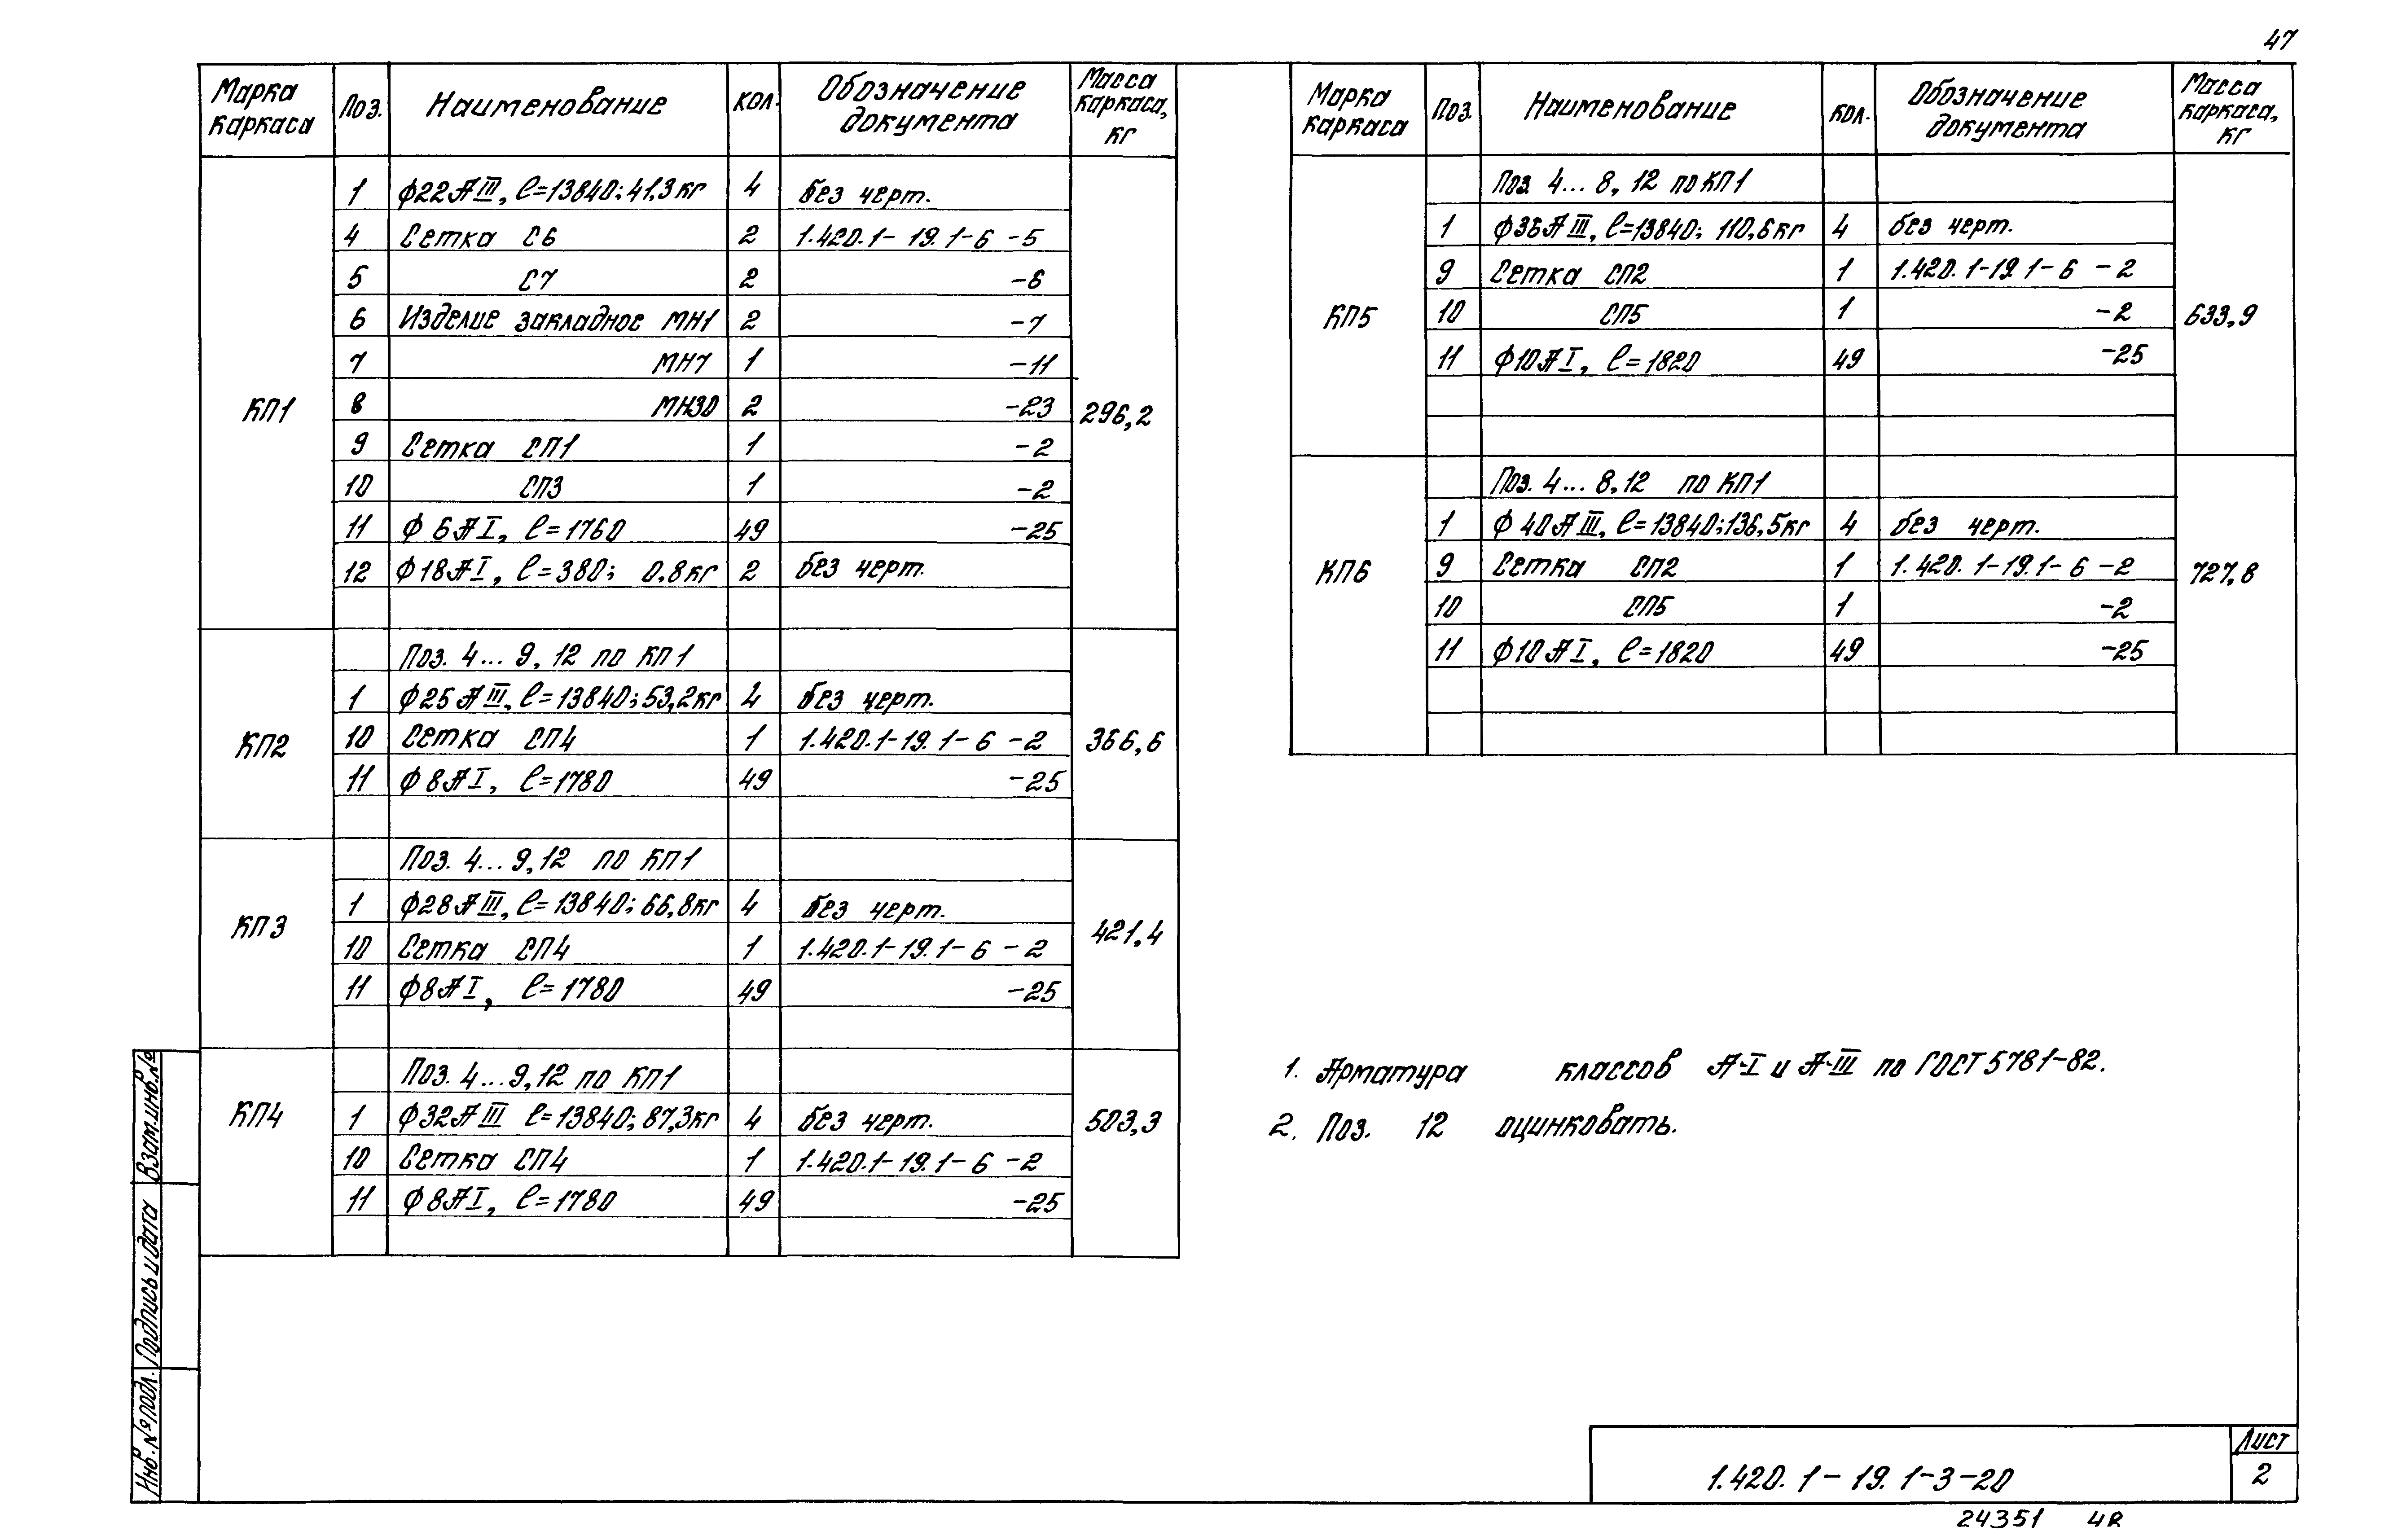 47
Марка каркаса Поз. Наименование кол. Обозначение документа Масса каркаса, кг
КП1 296,2
1 ф22АIII, ℓ=13840; 41,3кг 4 без черт.
4 Сетка С6 2 1.420.1-19.1-6 -5
5 С7 2 -6
6 Изделие закладное МН1 2 -7
7 МН7 1 -11
8 МН30 2 -23
9 Сетка СП1 1 -2
10 СП3 1 -2
11 ф6АI, ℓ=1760 49 -25
12 ф18АI, ℓ=380; 0,8кг 2 без черт.
КП2 366,6
Поз. 4...9, 12 по КП1
1 ф25АIII, ℓ=13840; 53,2кг 4 без черт.
10 Сетка СП4 1 1.420.1-19.1-6 -2
11 ф8АI, ℓ=1780 49 -25
КП3 421,4
Поз. 4...9,12 по КП1
1 ф28АIII, ℓ=13840; 66,8кг 4 без черт.
10 Сетка СП4 1 1.420.1-19.1-6 -2
11 ф8АI, ℓ=1780 49 -25
КП4 503,3
Поз. 4...9,12 по КП1
1 ф32АIII ℓ=13840; 87,3кг 4 без черт.
10 Сетка СП4 1 1.420.1-19.1-6 -2
11 ф8АI, ℓ=1780 49 -25
Марка каркаса Поз. Наименование кол. Обозначение документа Масса каркаса, кг
КП5 633,9
Поз. 4...8, 12 по КП1
1 ф36АIII, ℓ=13840; 110,6кг 4 без черт.
9 Сетка СП2 1 1.420.1-19.1-6 -2
10 СП5 1 -2
11 ф10АI, ℓ=1820 49 -25
КП6 727,8
Поз. 4...8,12 по КП1
1 ф40АIII, ℓ=13840; 136,5кг 4 без черт.
9 Сетка СП2 1 1.420.1-19.1-6 -2
10 СП5 1 -2
11 ф10АI, ℓ=1820 49 -25
1. Арматура классов А-I и А-III по ГОСТ 5781-82.
2. Поз. 12 оцинковать.
Взам.инв.№
Подпись и дата
Инв.№ подл.
1.420.1-19.1-3-20
Лист
2
24351